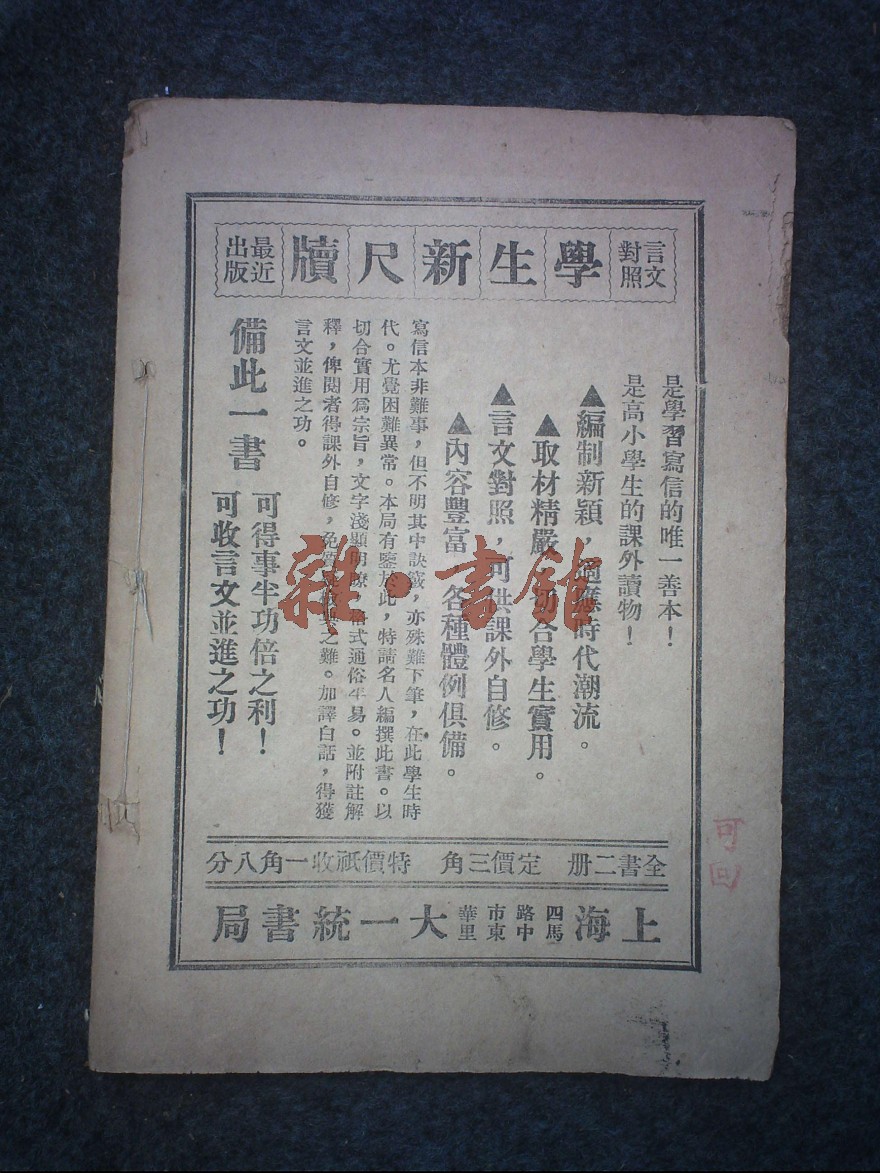 言文對照 學生新尺牘 最近出版
是學習寫信的唯一善本！
是高小學生的課外讀物！
▲編制新穎，適應時代潮流。
▲取材精嚴，切合學生實用。
▲言文對照，可供課外自修。
▲內容豐富，各種體例俱備。
寫信本非難事，但不明其中訣竅，亦殊難下筆，在此學生時
代。尤覺困難異常。本局有鑒於此，特請名人編撰此書。以
切合實用爲宗旨，文字淺顯明瞭，格式通俗平易。並附註解
釋，俾閱者得課外自修，免 之難。加譯白話，得獲
言文並進之功。
備此一書
可得事半功倍之利！
可收言文並進之功！
全書二册 定價三角 特價祇收一角八分
上海四馬路中市東華里大一統書局
可回
雜·書館